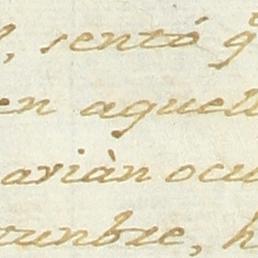 , sentó q̃
en aquell
avian ocu
runbre, h